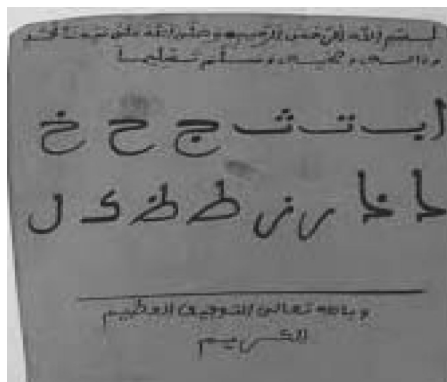 بسم الله الرحمن الرحيم وصلى الله على سيدنا محمد
وءاله وصحبه وسلم تسليما
ا ب ت ث ج ح خ
د ذ ر ز ط ظ ك ل
وبالله تعالى التوفيق العظيم
الكريم